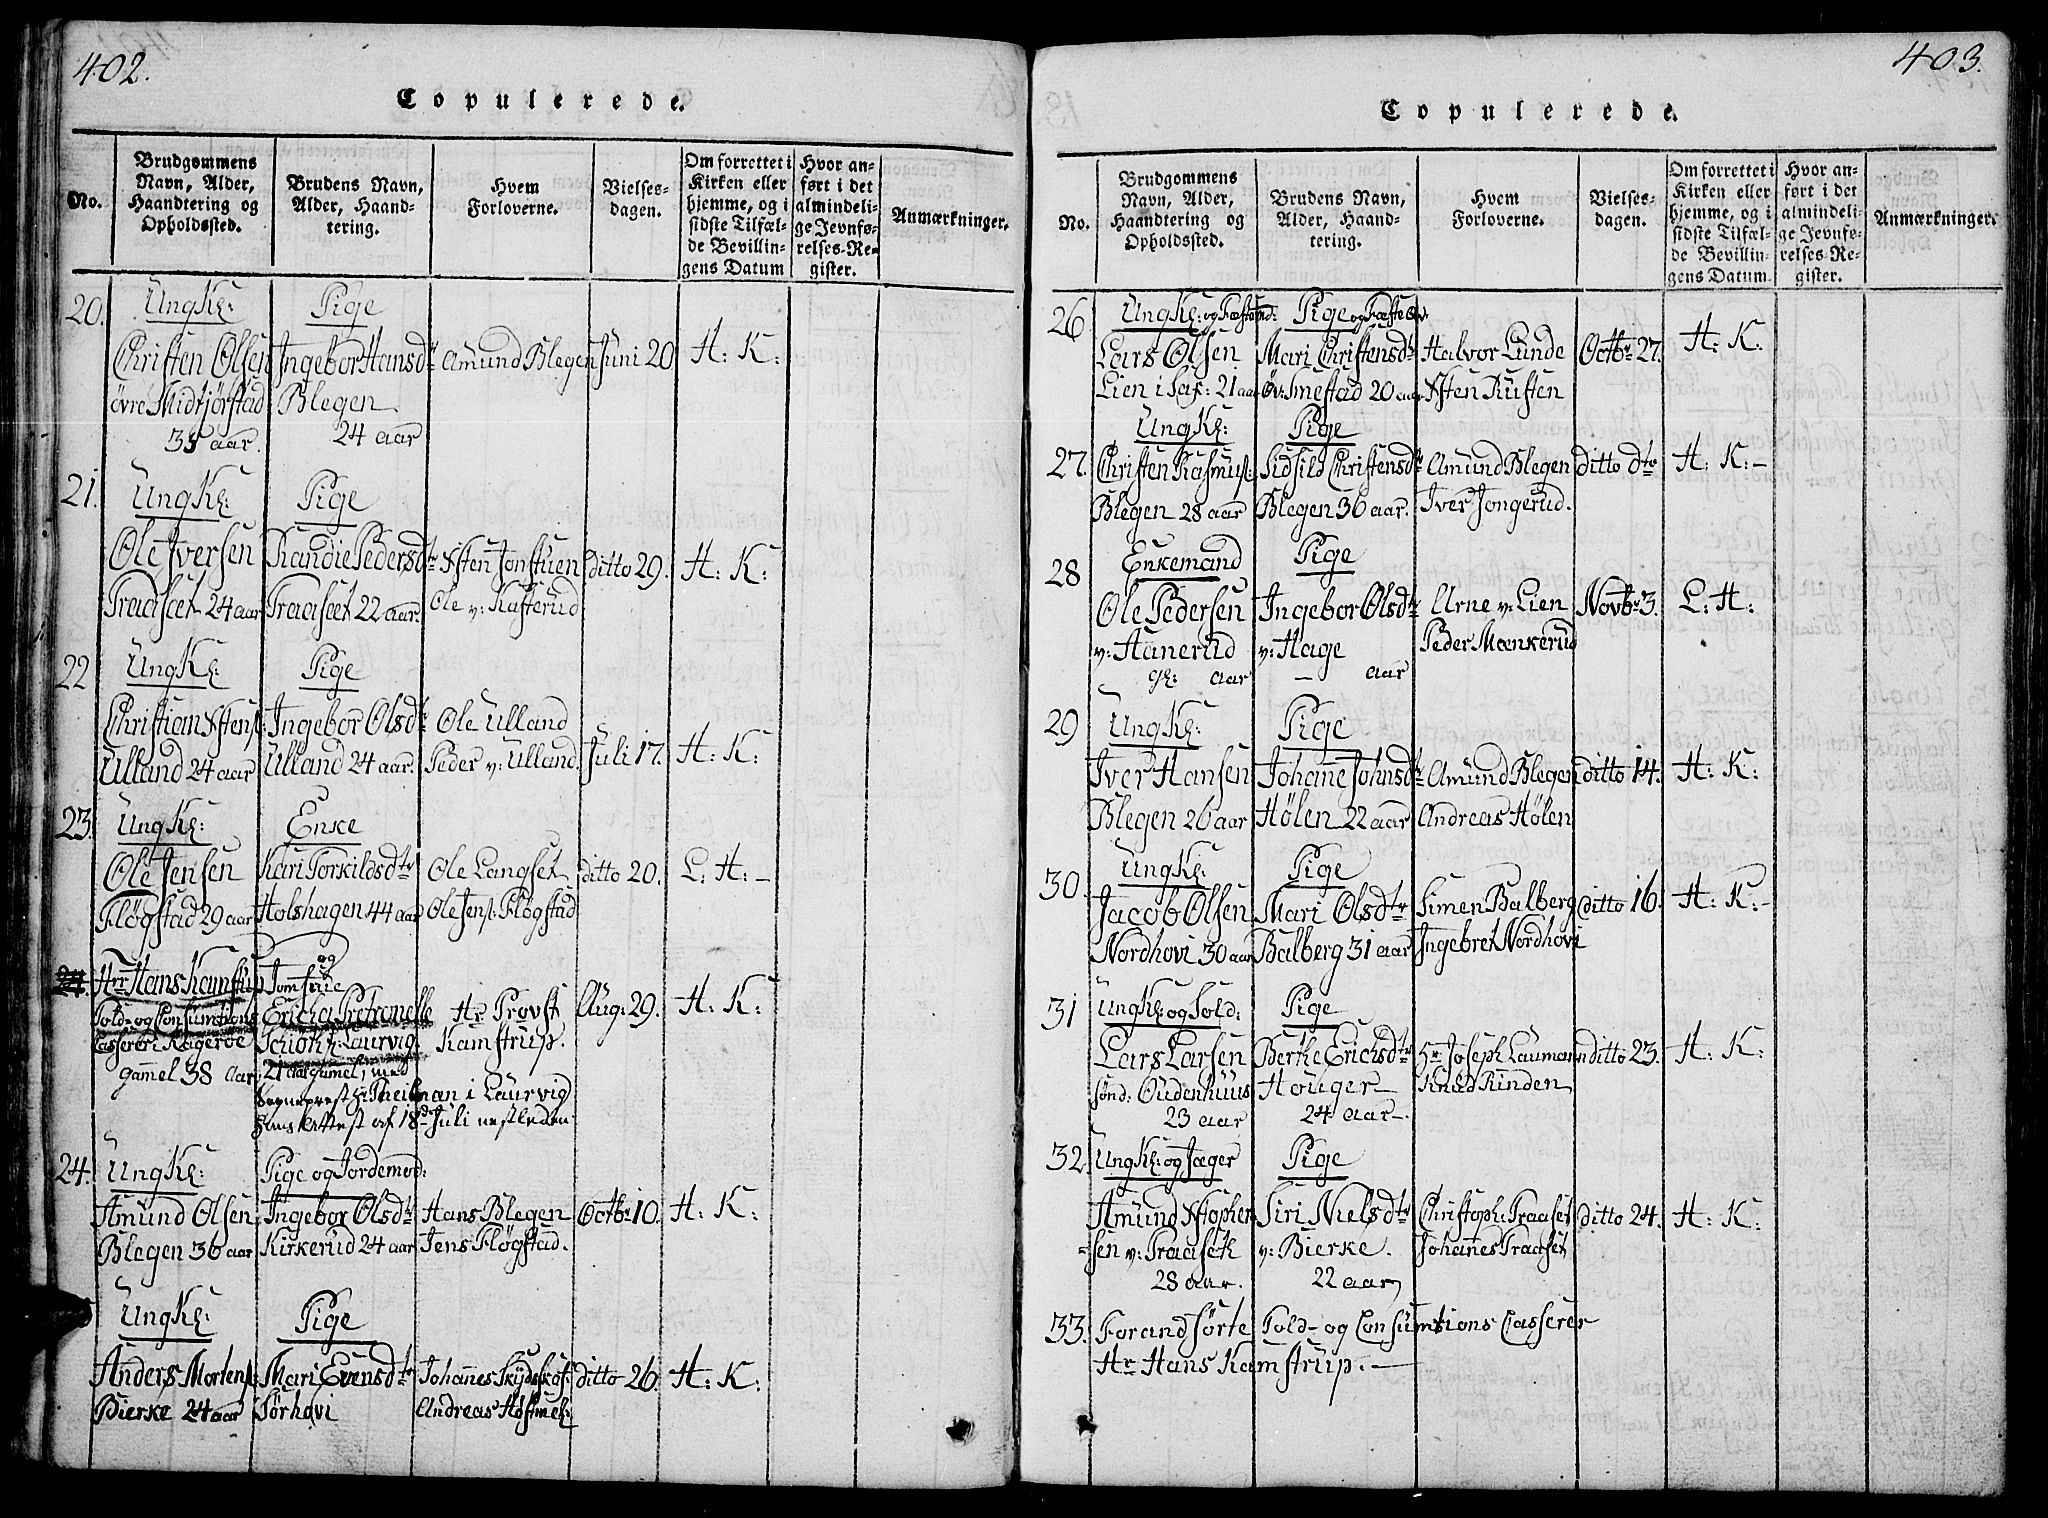 402.
Copulerede.
No.
Brudgommens Navn, Alder, Haandtering og Opholdssted.
Brudens Navn, Alder, Haandtering.
Hvem Forloverne.
Vielsesdagen.
Om forrettet i Kirken eller hjemme, og i sidste Tilfælde Bevillingens Datum
Hvor anført i det almindelige Jevnførelses-Register.
Anmærkninger.
20. UngK: Pige
Christen Olsen Ingebor Hansdtr Amund Blegen Juni 20 H: K:
övre Midtjörstad Blegen
35 aar. 24 aar
21. UngK: Pige
Ole Iversen Randie Pedersdtr Xsten Jonstuen ditto 29. H: K:
Traaset 24 aar Traaset 22 aar. Ole v: Kasterud
22 UngK: Pige
Christian Xstens: Ingebor Olsdtr Ole Ulland
Ulland 24 aar Ulland 24 aar. Peder v: Ulland. Juli 17. H: K:
23. UngK: Enke
Ole Jensen Kari Torkildsdtr Ole Langset ditto 20. L: H:-
Flögstad 29 aar Holshagen 44 aar Ole Jens: Flögstad
24. Hr Hans Kamstrup og Jomfrue
Told- og Consumtions Ericha Petronelle Hr Provst Aug: 29. H: K:
Casserer i Kageröe Schiötz: Laurvig. Kamstrup.
gammel 38 aar, 21 aar gamel, med
Sogneprest Hr Theilman i Laurvig
Hans Attest af 18d Juli nestleden
24. UngK: Pige og Jordemod:
Amund Olsen Ingebor Olsdtr Hans Blegen Octbr 10. H: K:
Blegen 36 aar Kirkerud 24 aar Jens Flögstad.
UngK: Pige
Anders Mortens: Mari Evensdtr Johannes Skydskaf: ditto 26. H: K:
Bierke 24 aar Sörhovi Andreas Höstmel:
403.
Copulerede.
No.
Brudgommens Navn, Alder, Haandtering og Opholdssted.
Brudens Navn, Alder, Haandtering.
Hvem Forloverne.
Vielsesdagen.
Om forrettet i Kirken eller hjemme, og i sidste Tilfælde Bevillingens Datum.
Hvor anført i det almindelige Jevnførelses-Register.
Anmærkninger.
26 UngK: og Pige og
Lars Olsen Mari Christensdtr Halvor Lunde Octbr 27. H: K.
Lien i Sax: 21 aar Öv: Smestad 20 aar Xsten Rusten
UngK: Pige
27. Christen Rasmus: Sidsild Christensdtr Amund Blegen ditto dto H: K:-
Blegen 28 aar Blegen 36 aar. Iver Jongerud.
28 Enkemand Pige
Ole Pedersen Ingebor Olsdtr Arne v: Lien Novbr 3. L: H:
v: Hanerud v: Hage Peder Mænkerud
aar - aar
29 UngK: Pige
Iver Hansen Johane Johnsdtr Amund Blegen ditto 14. H: K:
Blegen 26 aar Hölen 22 aar Andreas Hölen
30. UngK: Pige
Jacob Olsen Mari Olsdtr Simen Balberg ditto 16. H: K:-
Nordhovi 30 aar Balberg 31 aar Ingebret Nordhovi
31 UngK: og Sold: Pige
Lars Larsen Berte Erichsdtr Hr Joseph Laumann ditto 23. H: K:
sönd: Oudenhuus Houger Knud Rinden
23 aar 24 aar.
32. UngK: og Jæger Pige
Amund Xstopher= Siri Nielsdtr Christoph: Traaset ditto 24. H: K:
=sen v: Traaset v: Bierke. Johannes Traaset
28 aar. 22 aar
33. Forandförte Told- og Consumtions Casserer
Hr Hans Kamstrup.